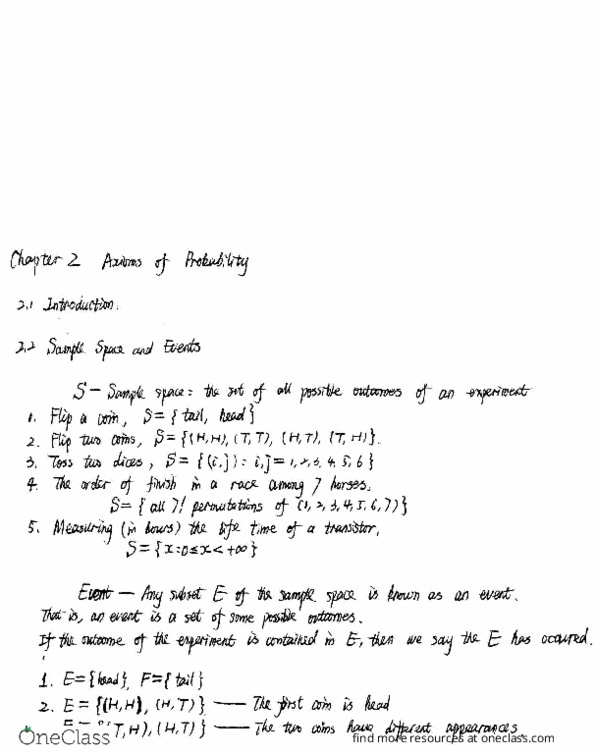 Chapter 2 Axioms of Probability
2.1 Introduction.
2.2 Sample Space and Events
S — Sample space: the set of all possible outcomes of an experiment
1. Flip a coin, S = {tail, head}
2. Flip two coins, S = {(H,H), (T,T), (H,T), (T,H)}.
3. Toss two dices, S = {(i,j): i,j = 1,2,3,4,5,6}
4. The order of finish in a race among 7 horses.
S = {all 7! permutations of (1,2,3,4,5,6,7)}
5. Measuring (in hours) the life time of a transistor,
S = {x: 0 ≤ x < +∞}
Event — Any subset E of the sample space is known as an event.
That is, an event is a set of some possible outcomes.
If the outcome of the experiment is contained in E, then we say the E has occured.
1. E = {head}, F = {tail}
2. E = {(H,H), (H,T)} — The first coin is head
T,H), (H,T)} — The two coins have different appearances.
OneClass
find more resources at oneclass.com